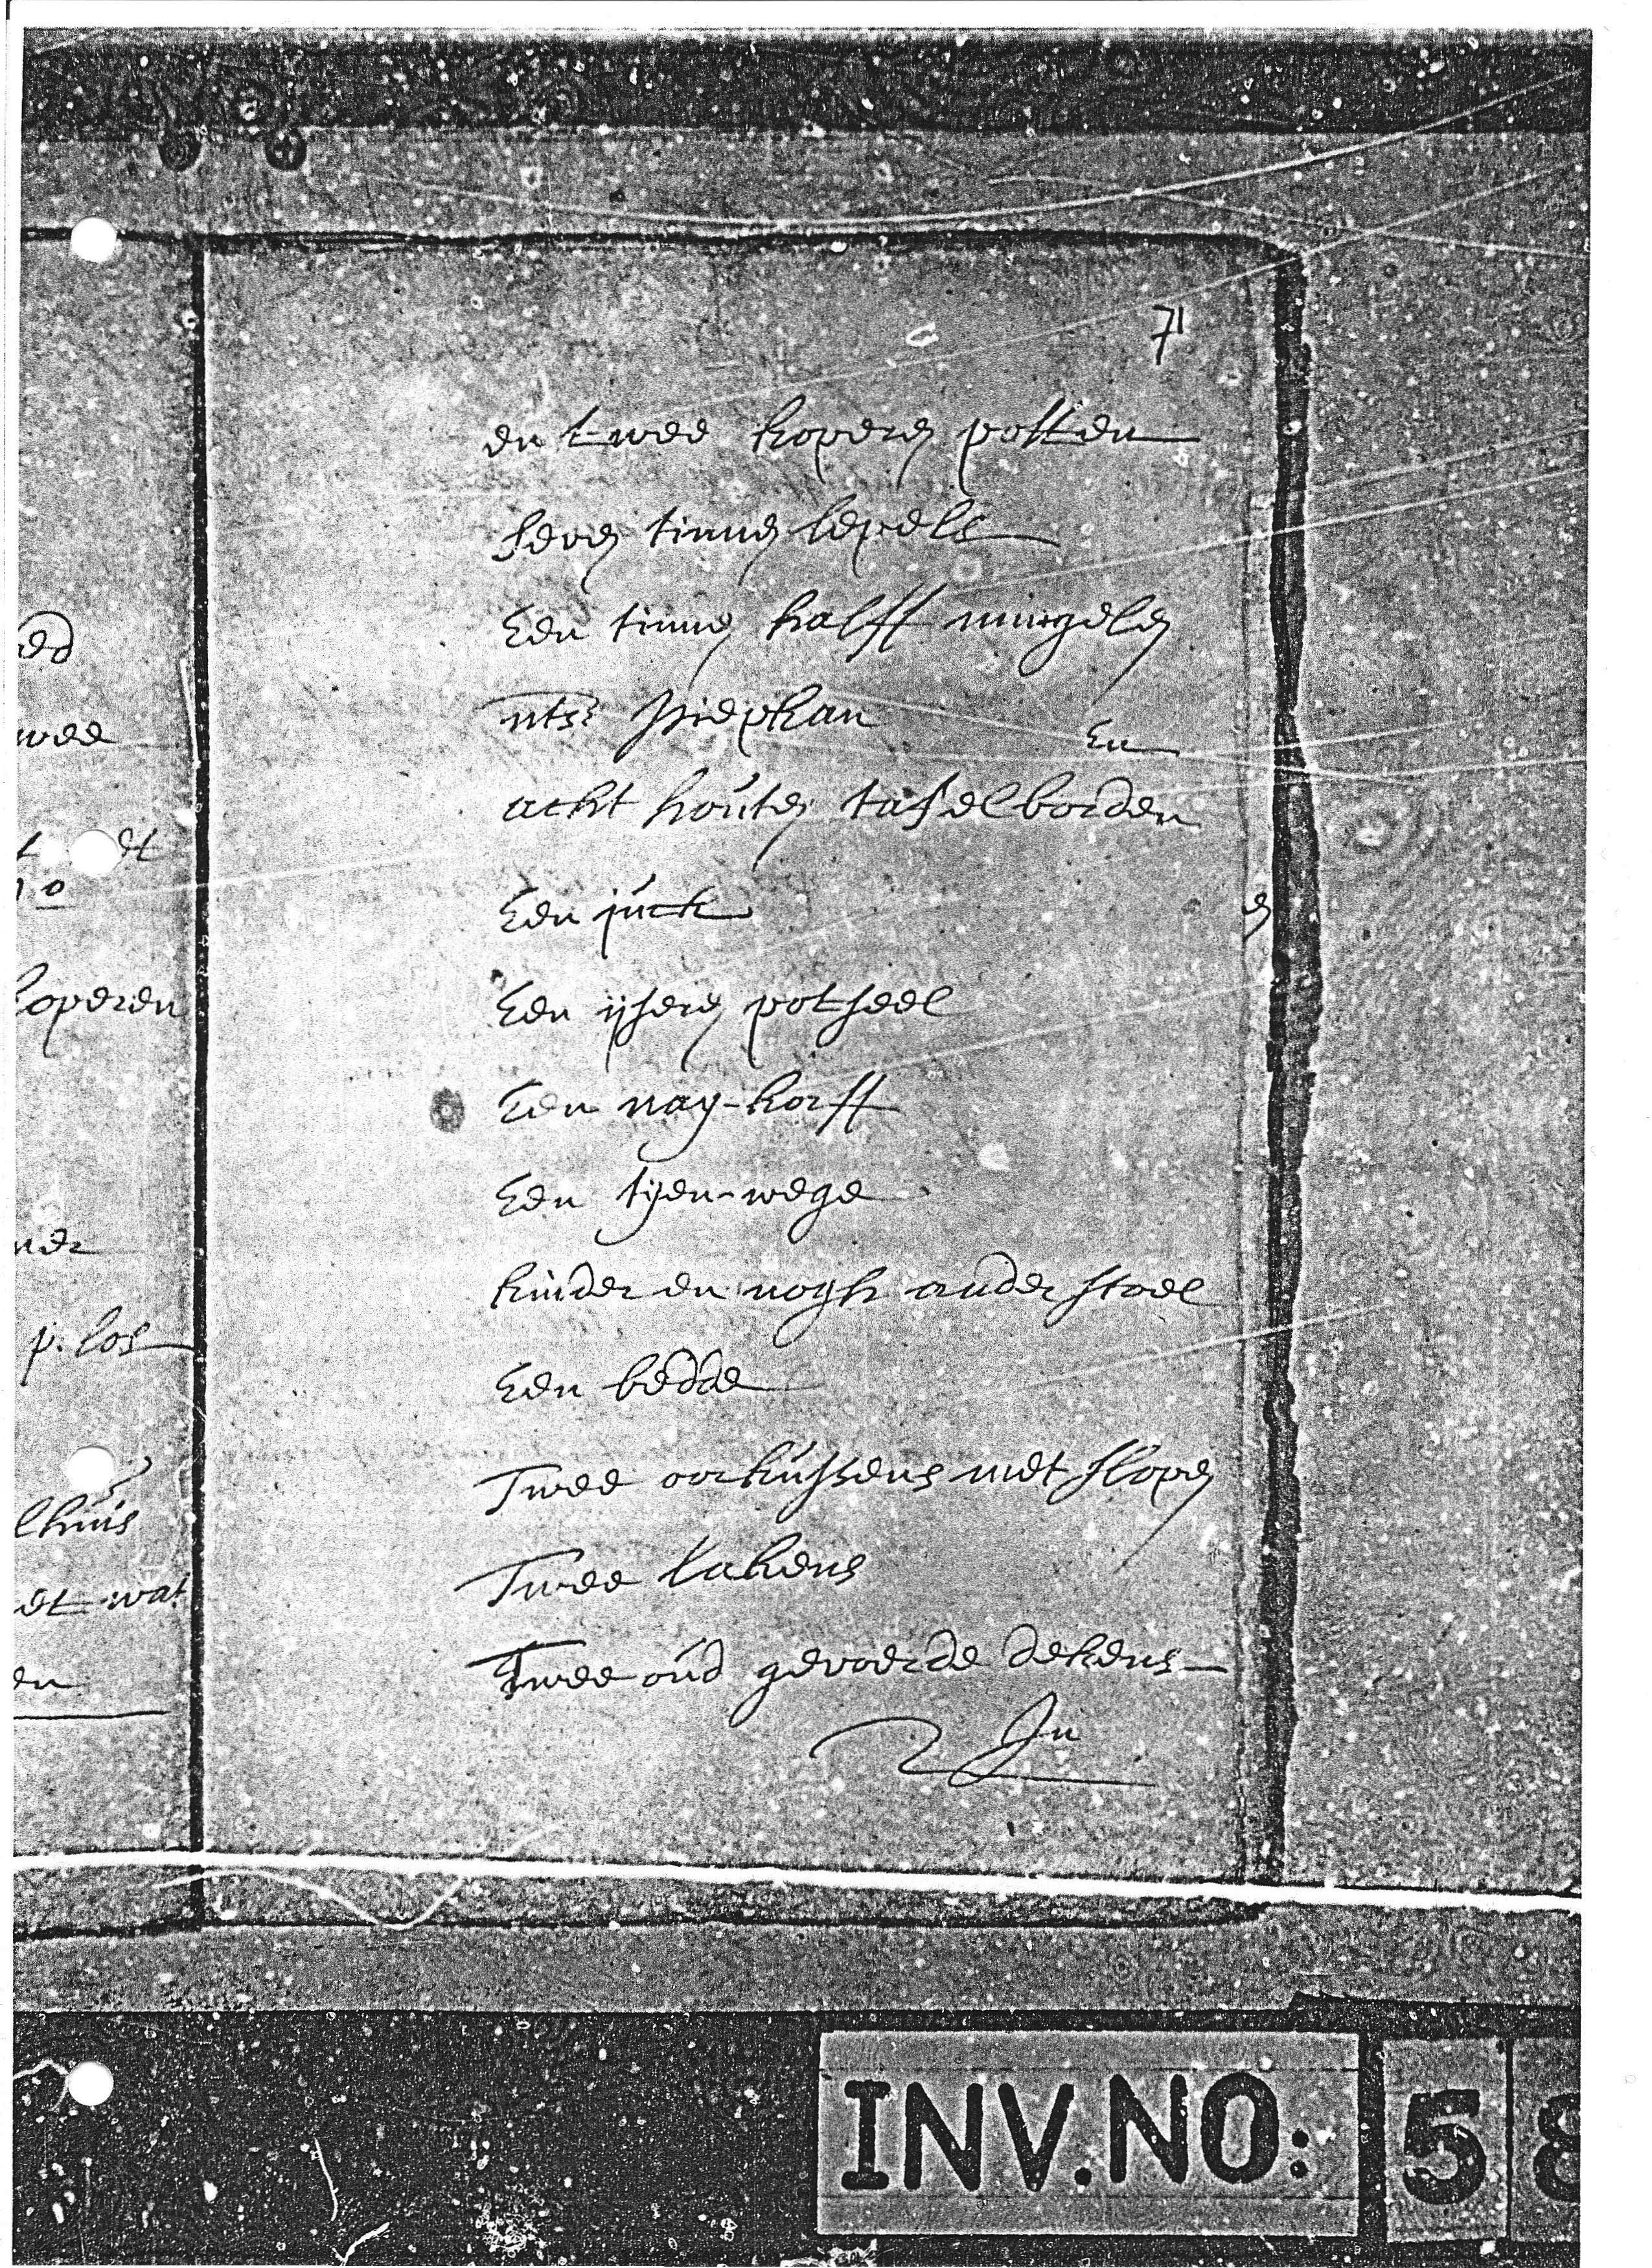 71
en twee koperen potten
seven tinnen lepels
Een tinnen halff mingelen
uts: piepkan
En
acht houten tafelborden
Een juck
Een ijseren potseel
Een nay-korff
Een tijen-wege
kinder en nogh ander stoel
Een bedde
Twee oorkussens met slopen
Twee lakens
Twee oud gevoerde dekens
In
wee
koperen
p. los
lhuis
et wat
en
INV.NO: 58